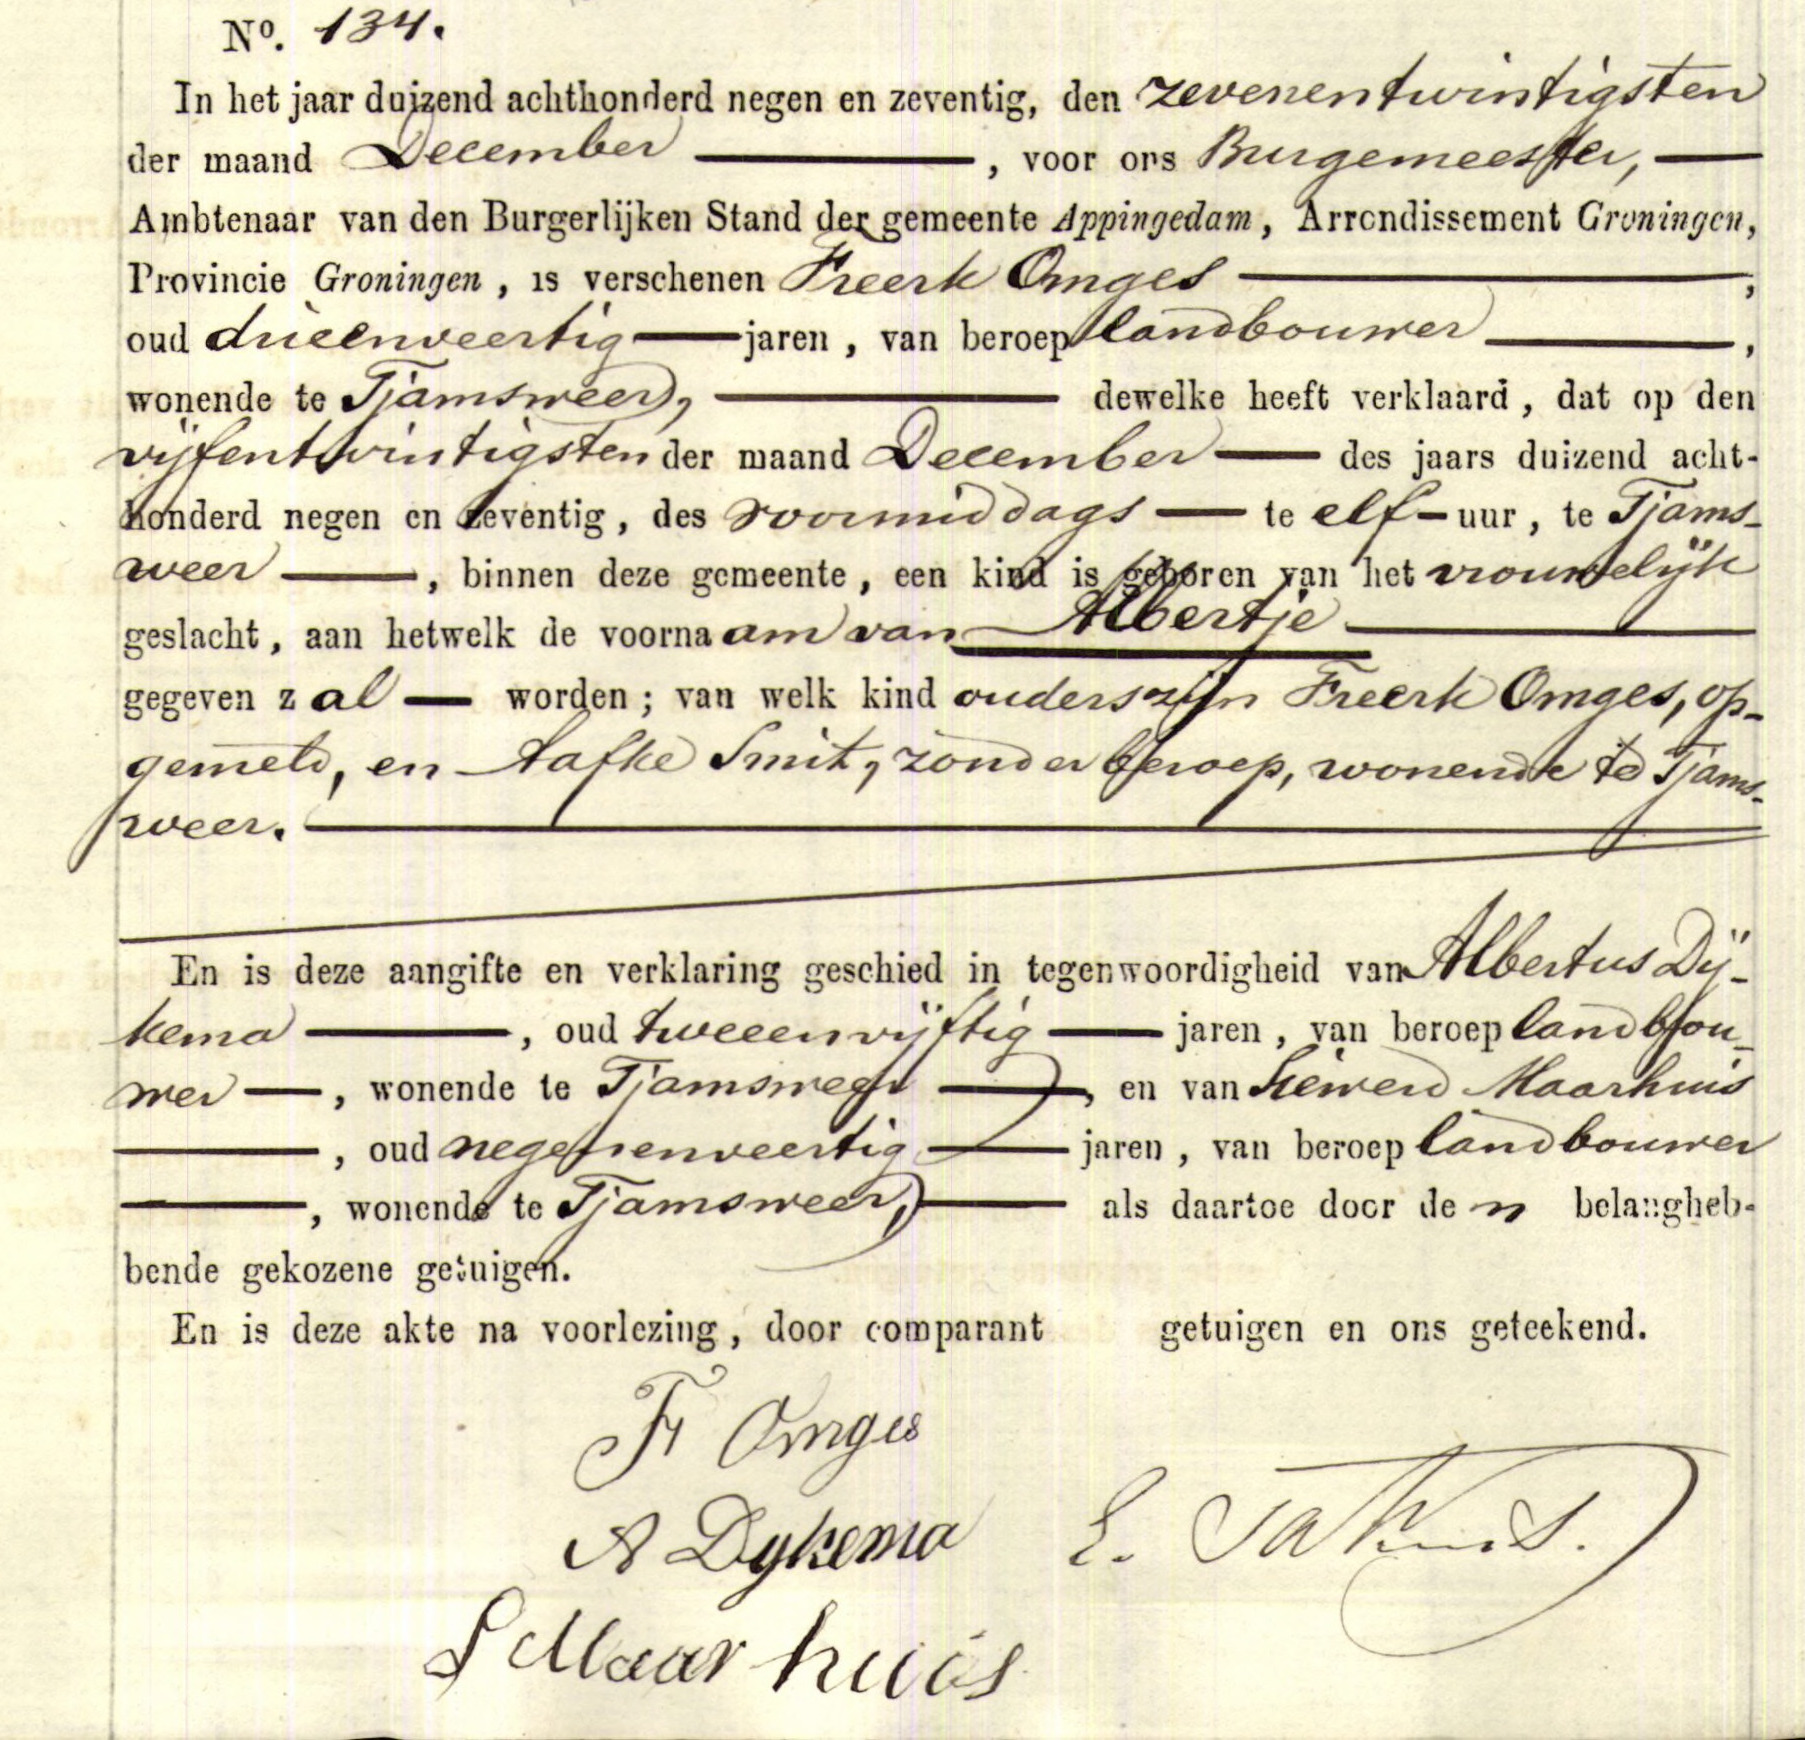 No. 134.
In het jaar duizend achthonderd negen en zeventig, den zevenentwintigsten
der maand December , voor ons Burgemeester,
Ambtenaar van den Burgerlijken Stand der gemeente Appingedam, Arrondissement Groningen,
Provincie Groningen, is verschenen Freerk Omges ,
oud drieenveertig jaren, van beroep landbouwer ,
wonende te Tjamsweer, dewelke heeft verklaard, dat op den
vijfentwintigsten der maand December des jaars duizend acht-
honderd negen en zeventig, des voormiddags te elf uur, te Tjams-
weer , binnen deze gemeente, een kind is geboren van het vrouwelijk
geslacht, aan hetwelk de voornaam van Albertje
gegeven zal worden; van welk kind ouders zijn Freerk Omges, op-
gemeld, en Aafke Smit, zonder beroep, wonende te Tjams-
weer.
En is deze aangifte en verklaring geschied in tegenwoordigheid van Albertus Dij-
kema , oud tweeenvijftig jaren, van beroep landbou-
wer , wonende te Tjamsweer , en van Siewerd Maarhuis
, oud negenenveertig jaren, van beroep landbouwer
, wonende te Tjamsweer, als daartoe door de n belangheb-
bende gekozene getuigen.
En is deze akte na voorlezing, door comparant getuigen en ons geteekend.
Fr Omges
A Dykema
E.
S Maarhuis